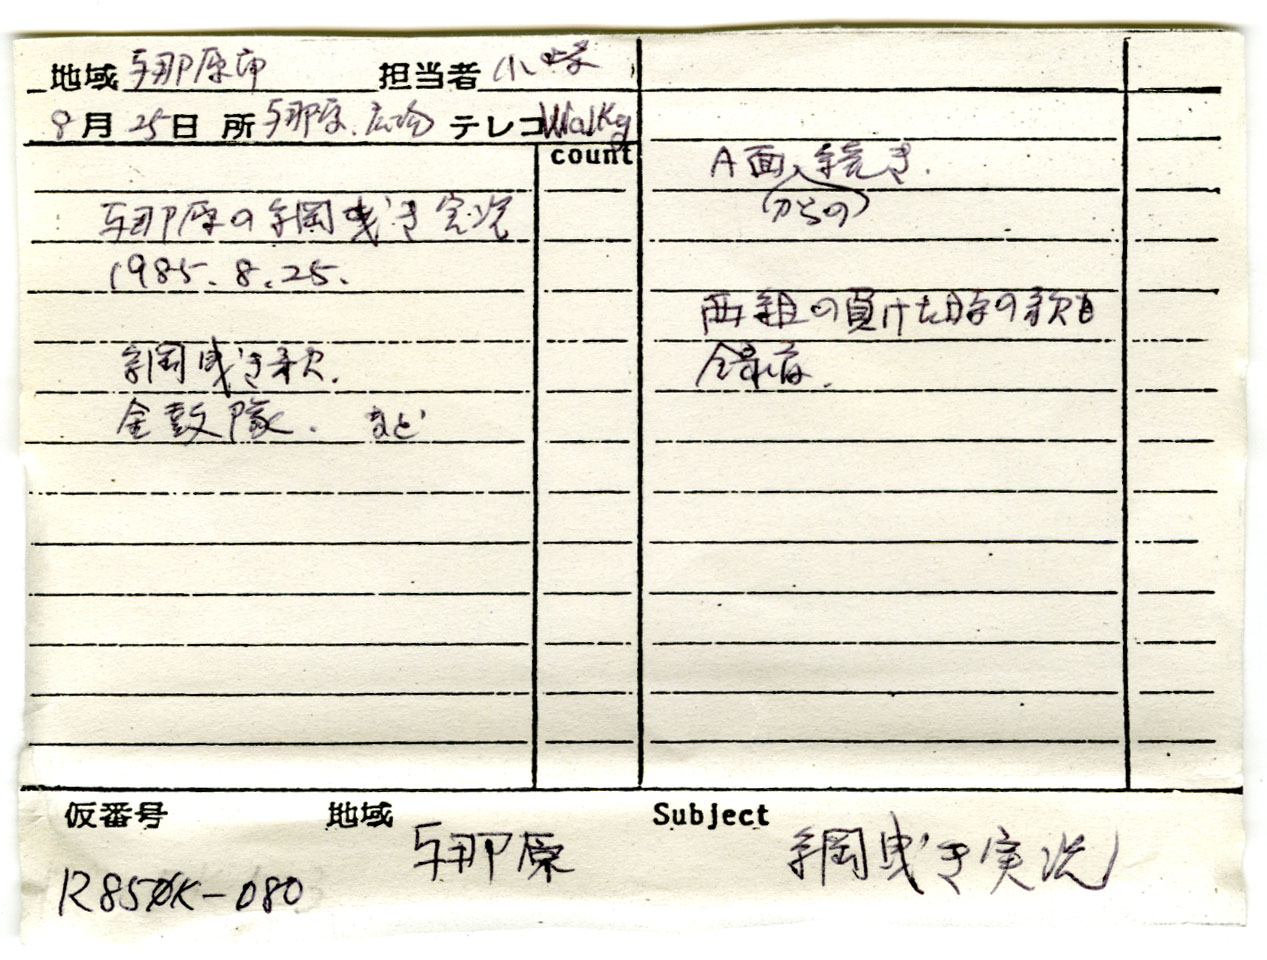 地域 与那原町 担当者 小
8月25日 所 与那原.広場 テレコ Walky
count
与那原の綱曳き実況
1985.8.25.
綱曳き歌.
金鼓隊. など
A面からの続き.
両組の負けた時の歌も
録音.
仮番号 地域 与那原 Subject 綱曳き実況
R85OK-080